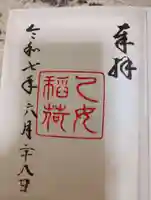 奉拝
乙女
稲荷
令和七年六月二十八日